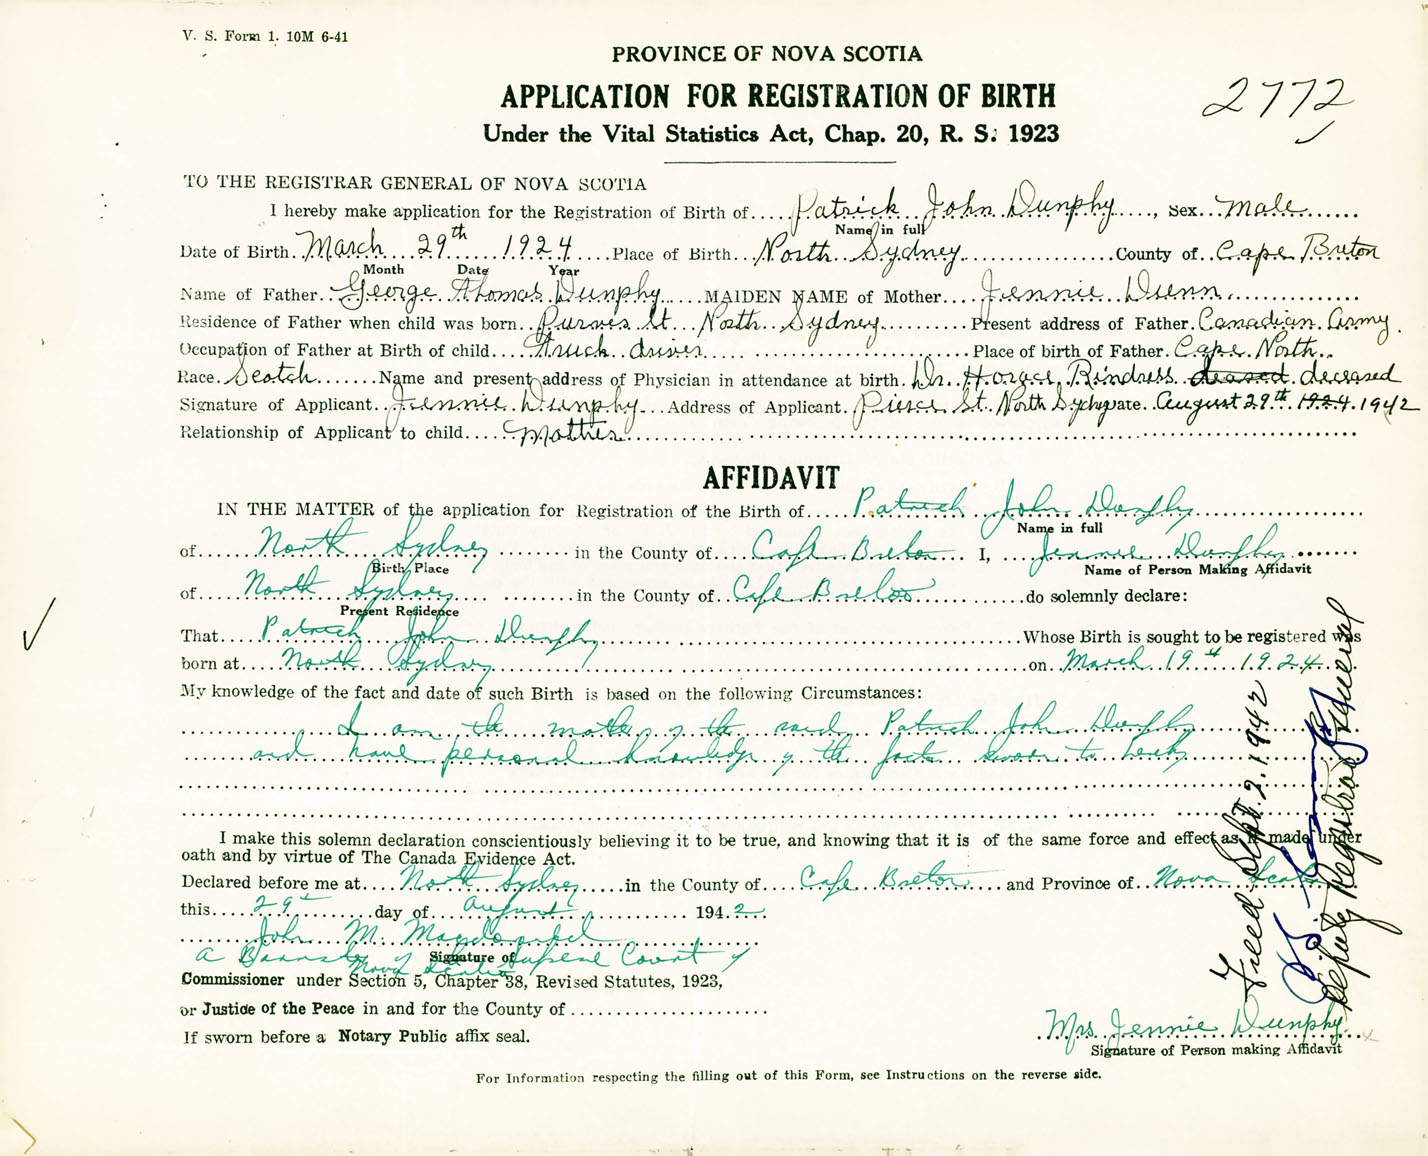 V. S. Form 1. 10M 6-41
PROVINCE OF NOVA SCOTIA
APPLICATION FOR REGISTRATION OF BIRTH
2772
Under the Vital Statistics Act, Chap. 20, R. S. 1923
TO THE REGISTRAR GENERAL OF NOVA SCOTIA
I hereby make application for the Registration of Birth of Patrick John Dunphy, Sex Male
Name in full
Date of Birth March 29th 1924 Place of Birth North Sydney County of Cape Breton
Month Date Year
Name of Father George Thomas Dunphy MAIDEN NAME of Mother Jennie Dunn
Residence of Father when child was born Purves St. North Sydney Present address of Father Canadian Army
Occupation of Father at Birth of child Truck driver Place of birth of Father Cape North
Race Scotch Name and present address of Physician in attendance at birth Dr. Horace Rindress deased deceased
Signature of Applicant Jennie Dunphy Address of Applicant Pierce St. North Syd Date August 29th 1924 1942
Relationship of Applicant to child Mother
AFFIDAVIT
IN THE MATTER of the application for Registration of the Birth of Patrick John Dunphy
Name in full
of North Sydney in the County of Cape Breton I, Jennie Dunphy
Birth Place Name of Person Making Affidavit
of North Sydney in the County of Cape Breton do solemnly declare:
Present Residence
That Patrick John Dunphy Whose Birth is sought to be registered was
born at North Sydney on March 19th 1924
My knowledge of the fact and date of such Birth is based on the following Circumstances:
I am the mother of the said Patrick John Dunphy
and have personal knowledge of the facts sworn to
I make this solemn declaration conscientiously believing it to be true, and knowing that it is of the same force and effect as if made under
oath and by virtue of The Canada Evidence Act.
Declared before me at North Sydney in the County of Cape Breton and Province of Nova Scotia
this 29th day of August 1942.
John M. Macdonald
A Barrister of the Supreme Court of
Signature of
Nova Scotia
Commissioner under Section 5, Chapter 38, Revised Statutes, 1923,
or Justice of the Peace in and for the County of
If sworn before a Notary Public affix seal.
Mrs Jennie Dunphy
Signature of Person making Affidavit
For Information respecting the filling out of this Form, see Instructions on the reverse side.
Filed Sept. 2. 1942
Deputy Registrar General